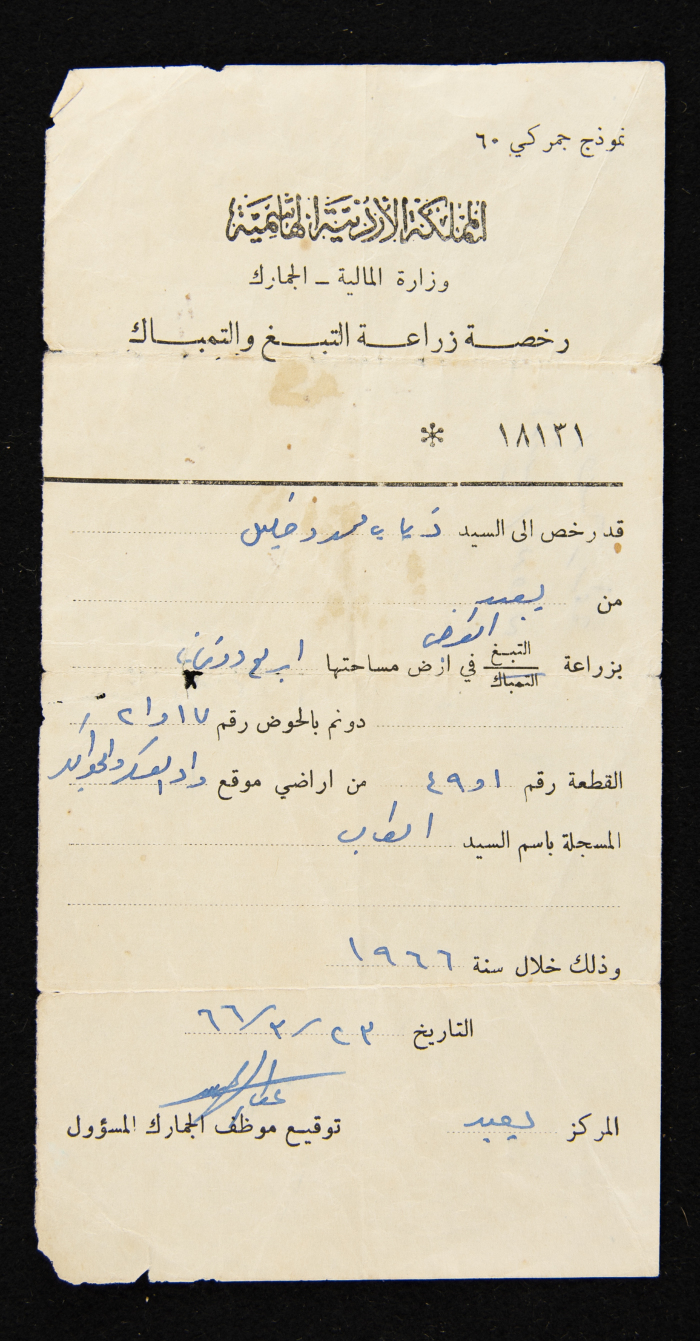 نموذج جمركي ٦٠
المملكة الأردنية الهاشمية
وزارة المالية - الجمارك
رخصة زراعة التبغ والتمباك
١٨١٣١ *
قد رخص الى السيد ذياب محمود خليل
من يعبد
بزراعة التبغ التمباك في ارض مساحتها اربع دونمات
دونم بالحوض رقم ١٧ و ٢١
القطعة رقم ١ و ٤٩ من اراضي موقع واد العسكر
المسجلة باسم السيد الطالب
وذلك خلال سنة ١٩٦٦
التاريخ ٢٣/٣/٦٦
المركز يعبد توقيع موظف الجمارك المسؤول